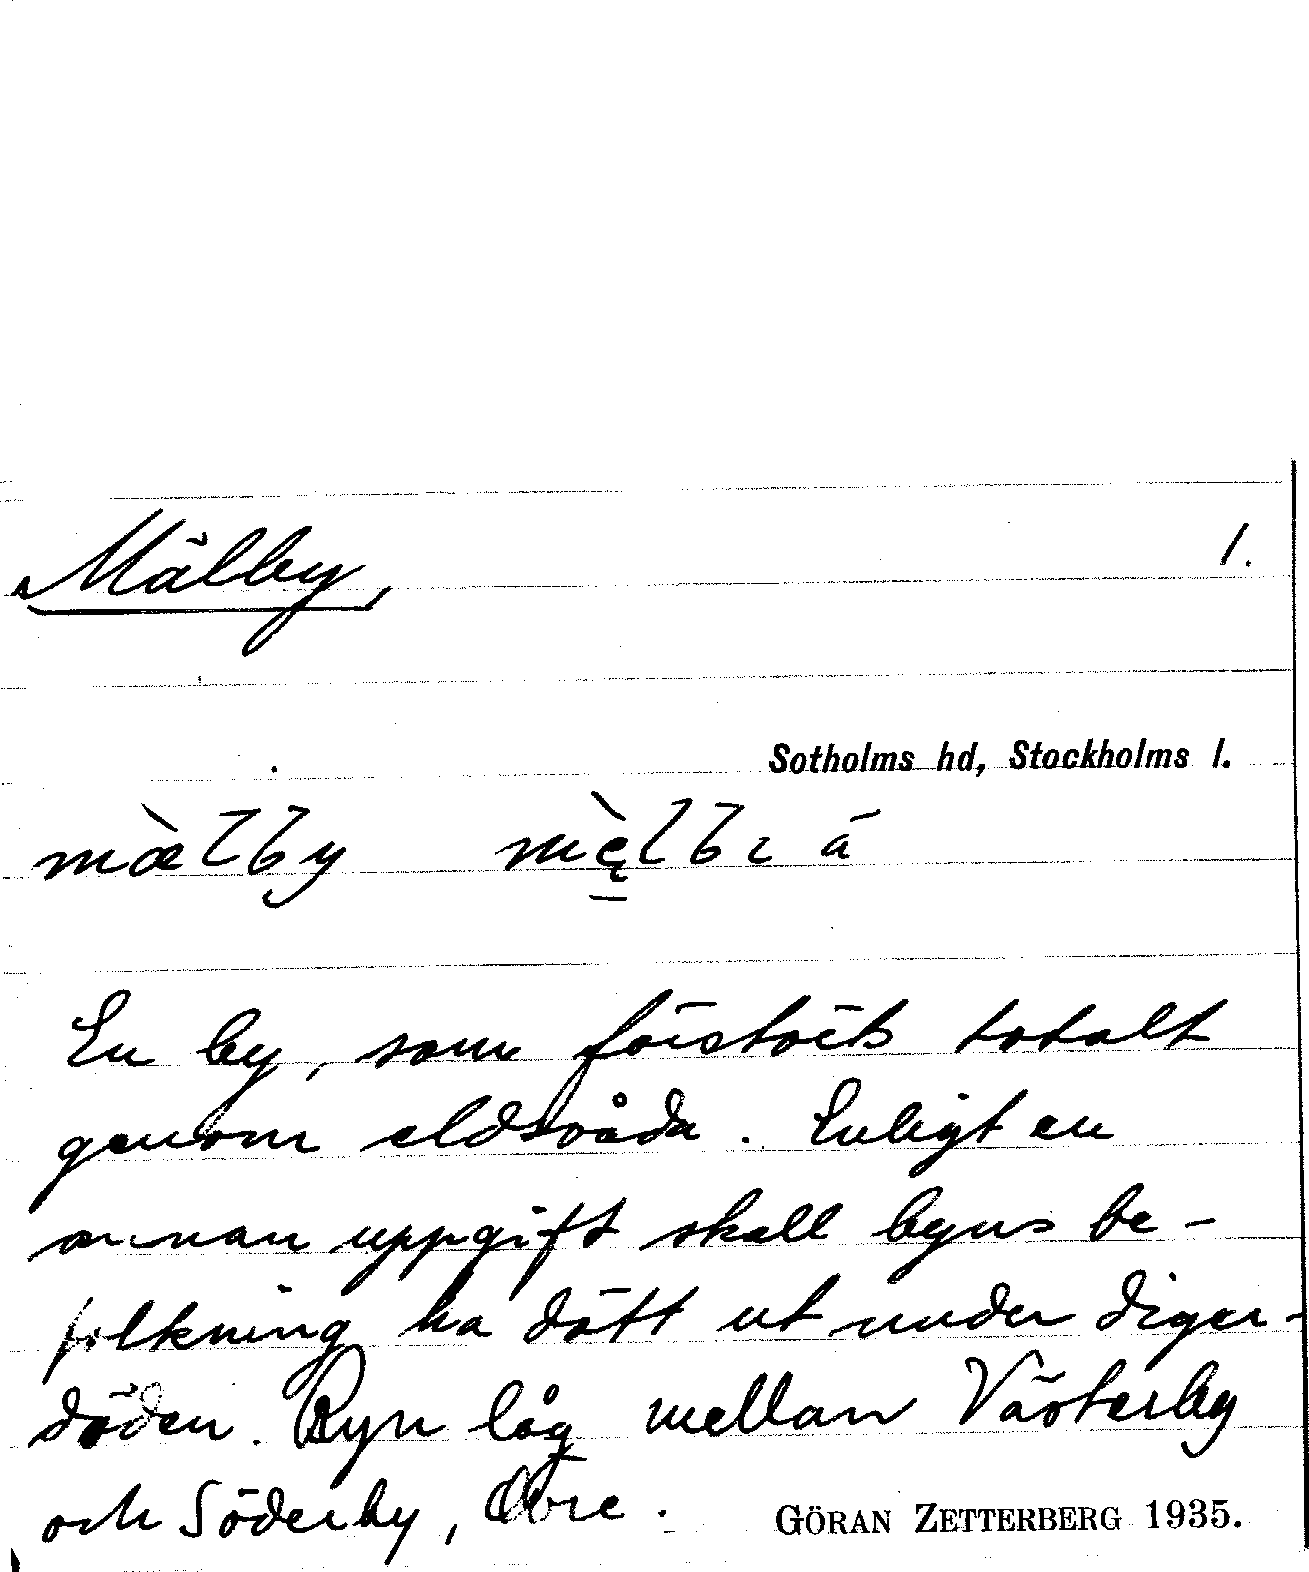 Mälby, 1.
Sotholms hd, Stockholms l.
mæ̀lby mę̀lbı á
En by, som förstörts totalt
genom eldsvåda. Enligt en
annan uppgift skall byns be-
folkning ha dött ut under diger-
döden. Byn låg mellan Västerby
och Söderby, Övre.
GÖRAN ZETTERBERG 1935.